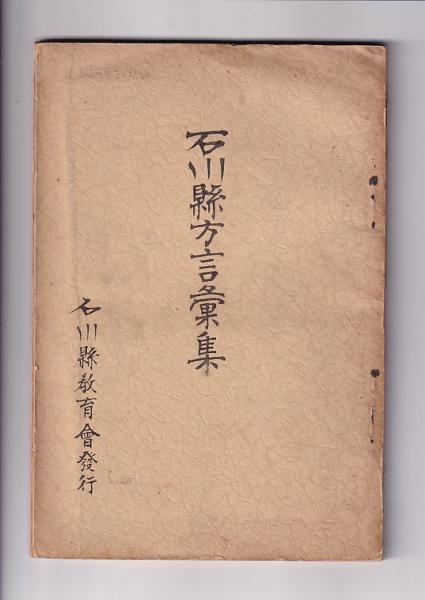 石川縣方言彙集
石川縣教育會發行